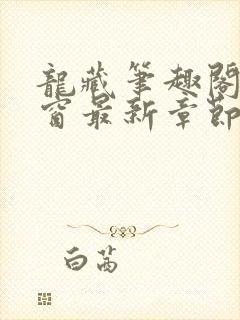 龍藏筆趣閣
窗最新章節
白茜